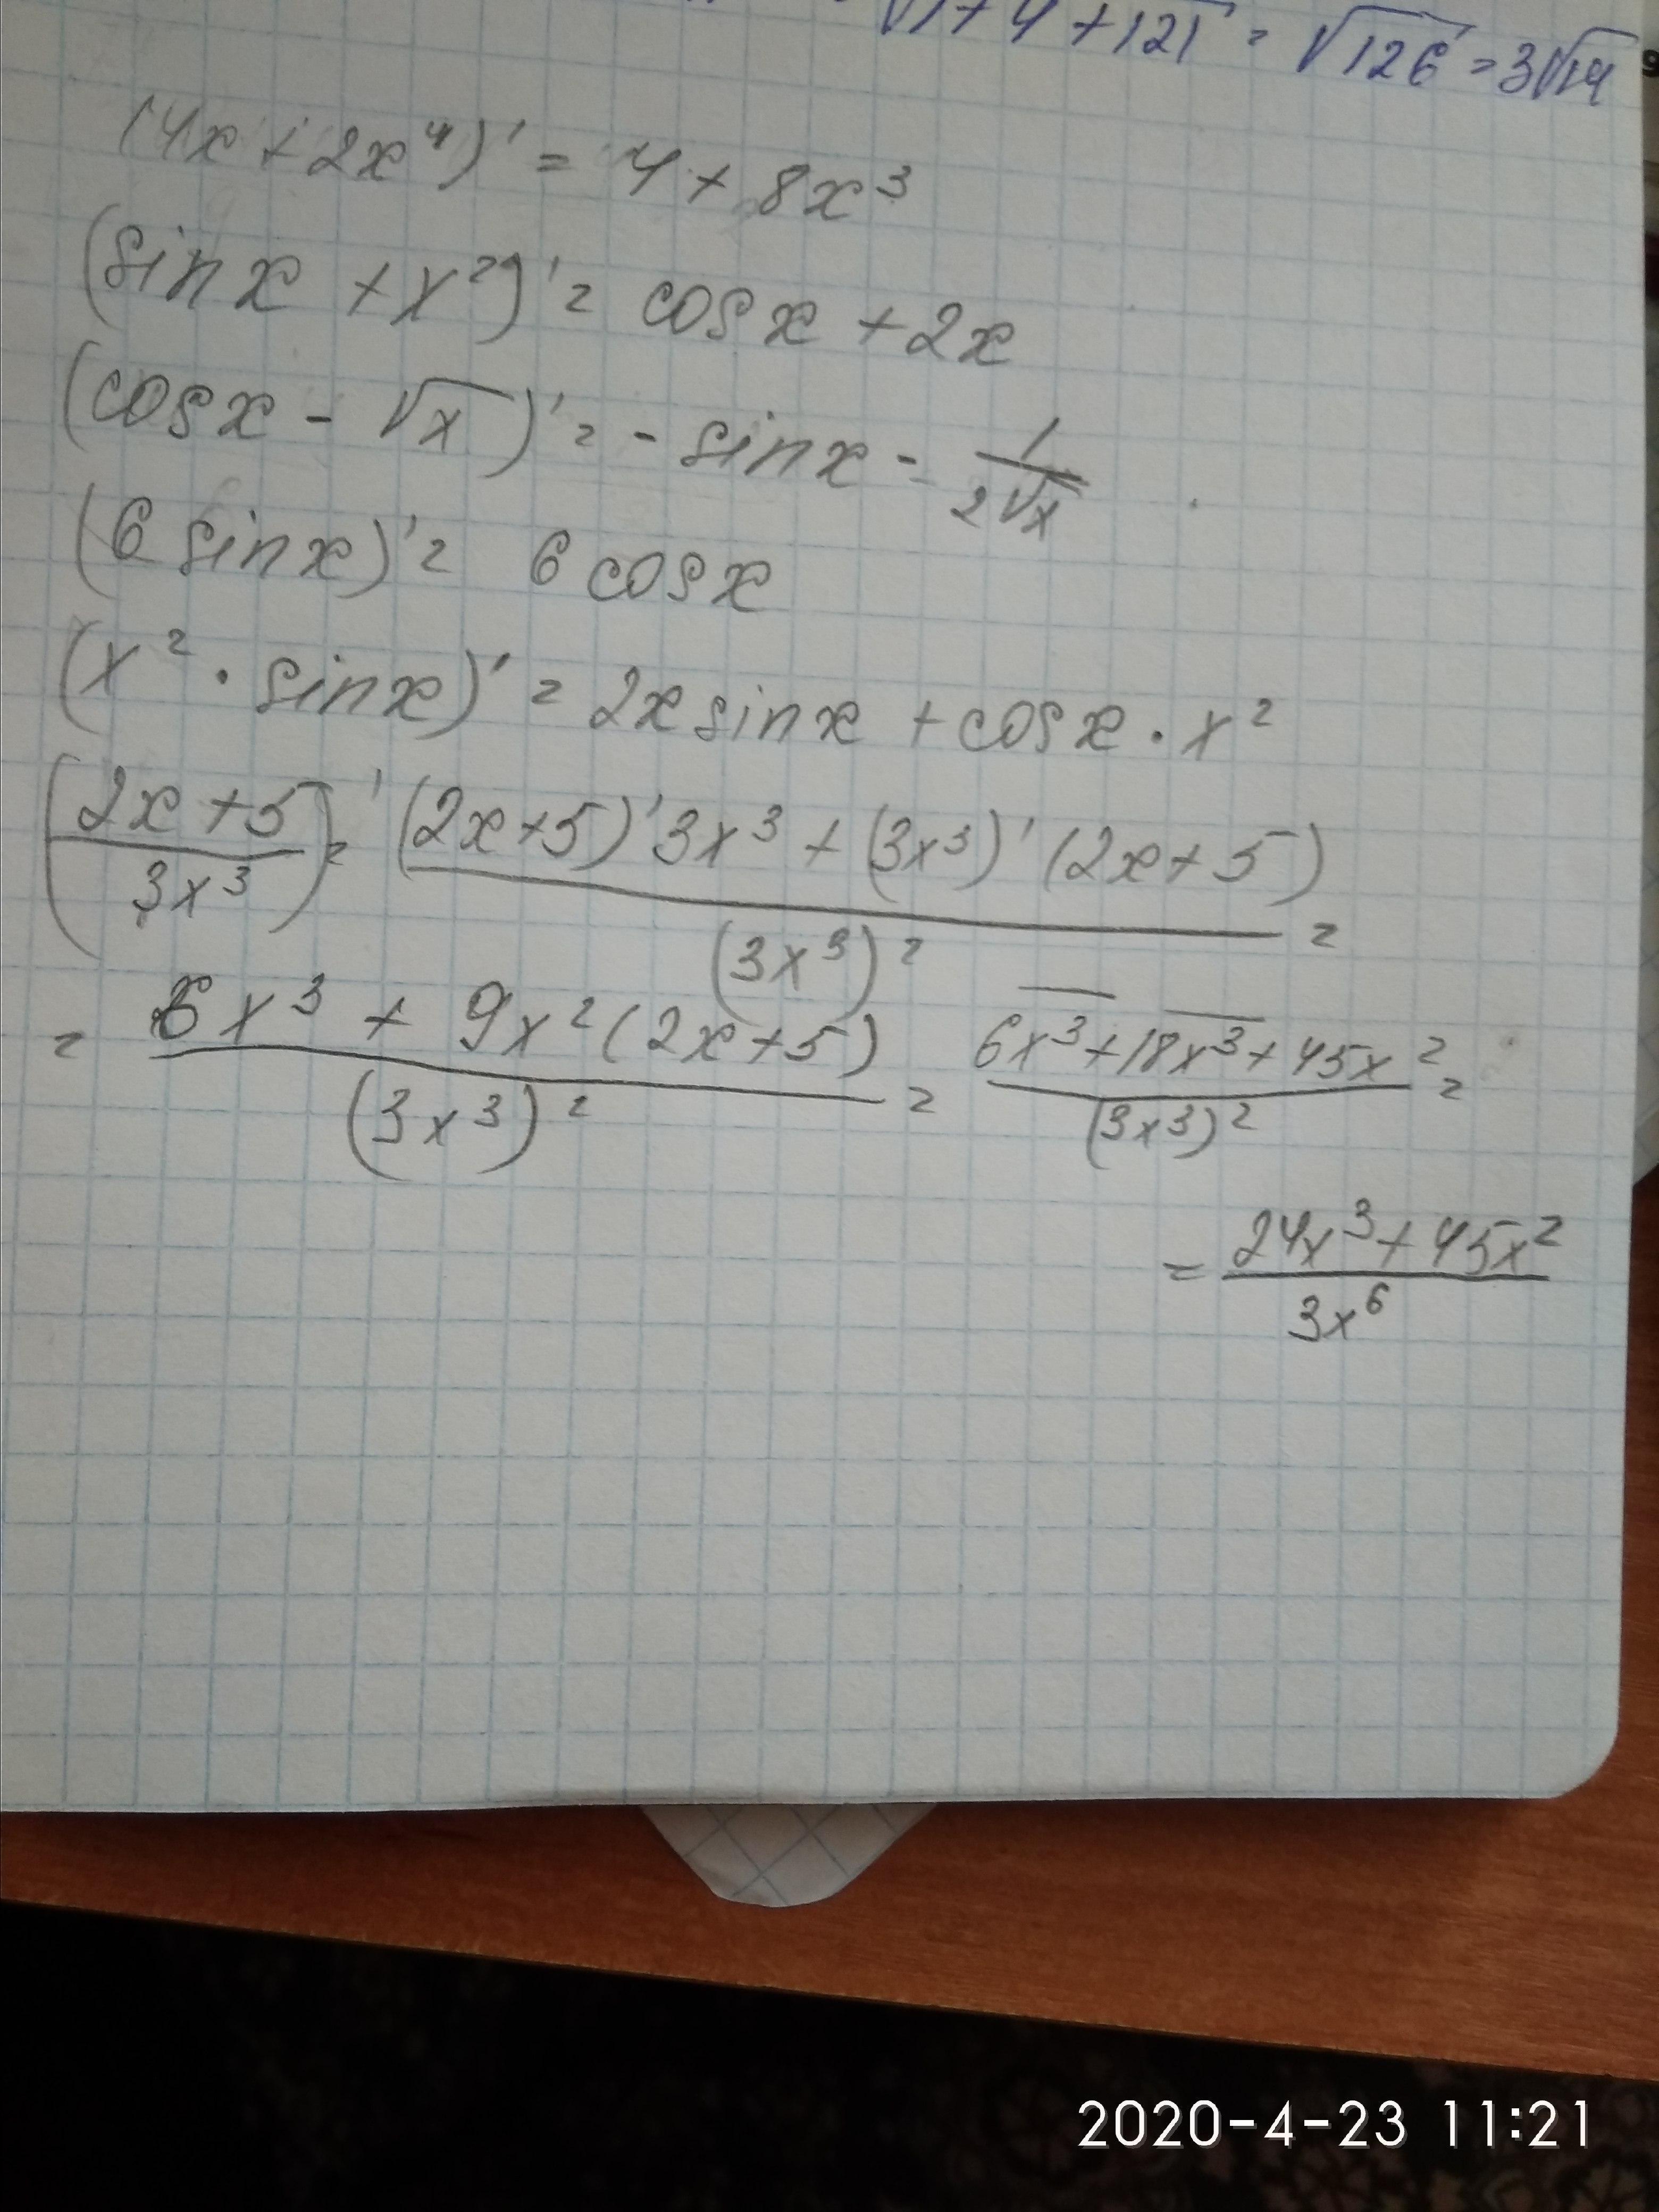 √1+4+121 = √126 = 3√14
(4x + 2x⁴)' = 4 + 8x³
(sin x + x²)' = cos x + 2x
(cos x - √x)' = - sin x - 1/(2√x)
(6 sin x)' = 6 cos x
(x² · sin x)' = 2x sin x + cos x · x²
((2x+5)/(3x³))' = ((2x+5)' 3x³ + (3x³)' (2x+5))/((3x³)²) =
= (6x³ + 9x²(2x+5))/((3x³)²) = (6x³+18x³+45x²)/((3x³)²) =
= (24x³+45x²)/(3x⁶)
2020-4-23 11:21